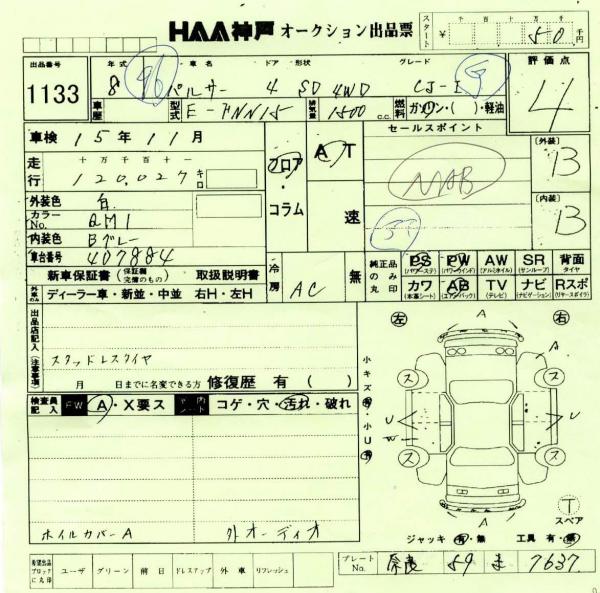 HAA神戸 オークション出品票
スタート ¥ 千 百 十 万 千 50 千円
出品番号 年式 車名 ドア 形状 グレード 評価点
1133 8 96 パルサー 4 SD 4WD CJ-I 4
車歴 型式 E-FNN15 排気量 1500 c.c. 燃料 ガソリン・( )・軽油
車検 15年11月 フロア AT セールスポイント
走行 十万千百十一 120,027 キロ NAB [外装] B
外装色 白
カラーNo. QM1 コラム 速 [内装] B
内装色 Bグレー
車台番号 407884
新車保証書(保証欄完備のもの) 取扱説明書 冷房 AC 無
純正品のみ丸印 PS(パワーステ) PW(パワーウインド) AW(アルミホイル) SR(サンルーフ) 背面タイヤ
カワ(本革シート) AB(エアーバック) TV(テレビ) ナビ(ナビゲーション) Rスポ(リヤースポイラ)
外車のみ ディーラー車・新並・中並 右H・左H
出品店記入(注意事項) スタッドレスタイヤ
月 日までに名変できる方 修復歴 有 ( )
検査員記入 FW A・X要ス 内 シート コゲ・穴・汚れ・破れ
小キズ有・小U有
左 右
A
A
ス ス
U U
W
ス ス
A
ホイルカバーA 外オーディオ
T スペア
ジャッキ 有・無 工具 有・無
希望出品ブロックに丸印 ユーザ グリーン 前日 ドレスアップ 外車 リフレッシュ
プレートNo. 奈良 59 ま 7637